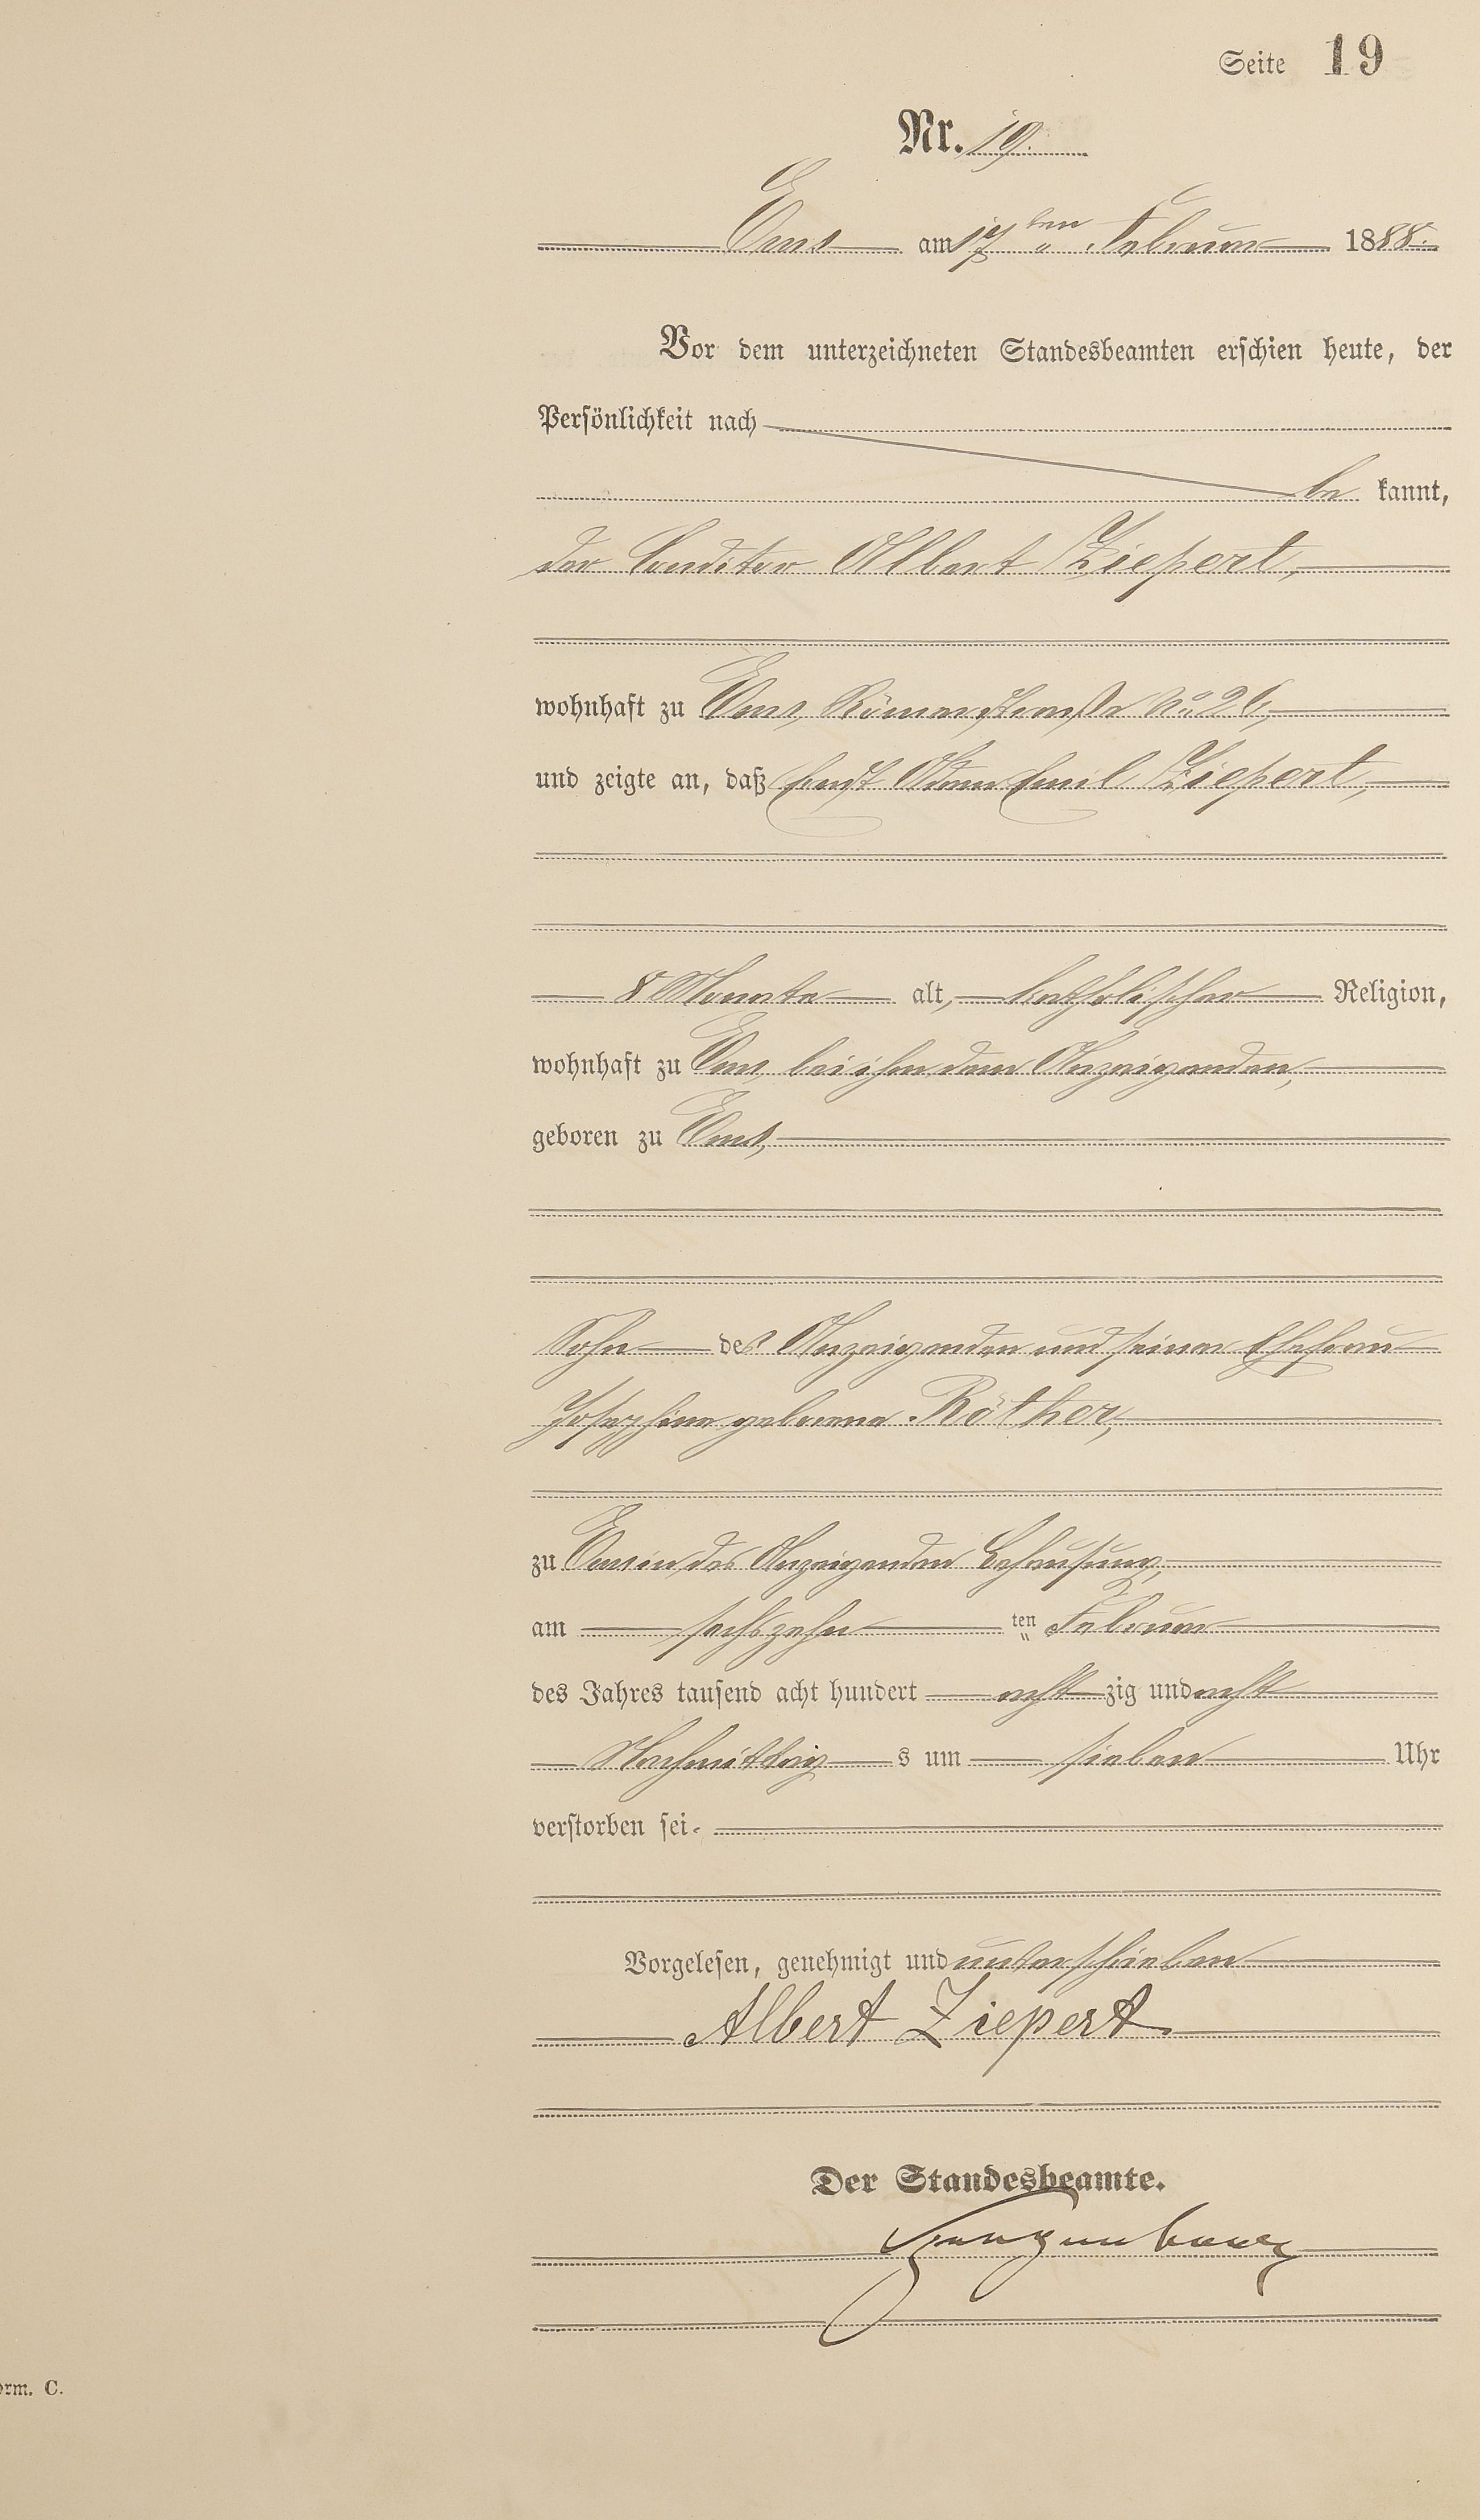 Seite 19
Nr. 19.
Ems am 17 ten Februar 1888.
Vor dem unterzeichneten Standesbeamten erschien heute, der
Persönlichkeit nach
be kannt,
der Conditor Albert Ziepert,
wohnhaft zu Ems, Römerstraße No. 26,
und zeigte an, daß Ernst Adam Emil Ziepert,
8 Monate alt, katholischer Religion,
wohnhaft zu Ems, bei ihm dem Anzeigenden,
geboren zu Ems,
Sohn des Anzeigenden und seiner Ehefrau
Josephine geborene Röther,
zu Ems in des Anzeigenden Behausung,
am sechszehn ten Februar
des Jahres tausend acht hundert acht zig und acht
Nachmittag s um sieben Uhr
verstorben sei.
Vorgelesen, genehmigt und unterschrieben
Albert Ziepert
Der Standesbeamte.
orm. C.